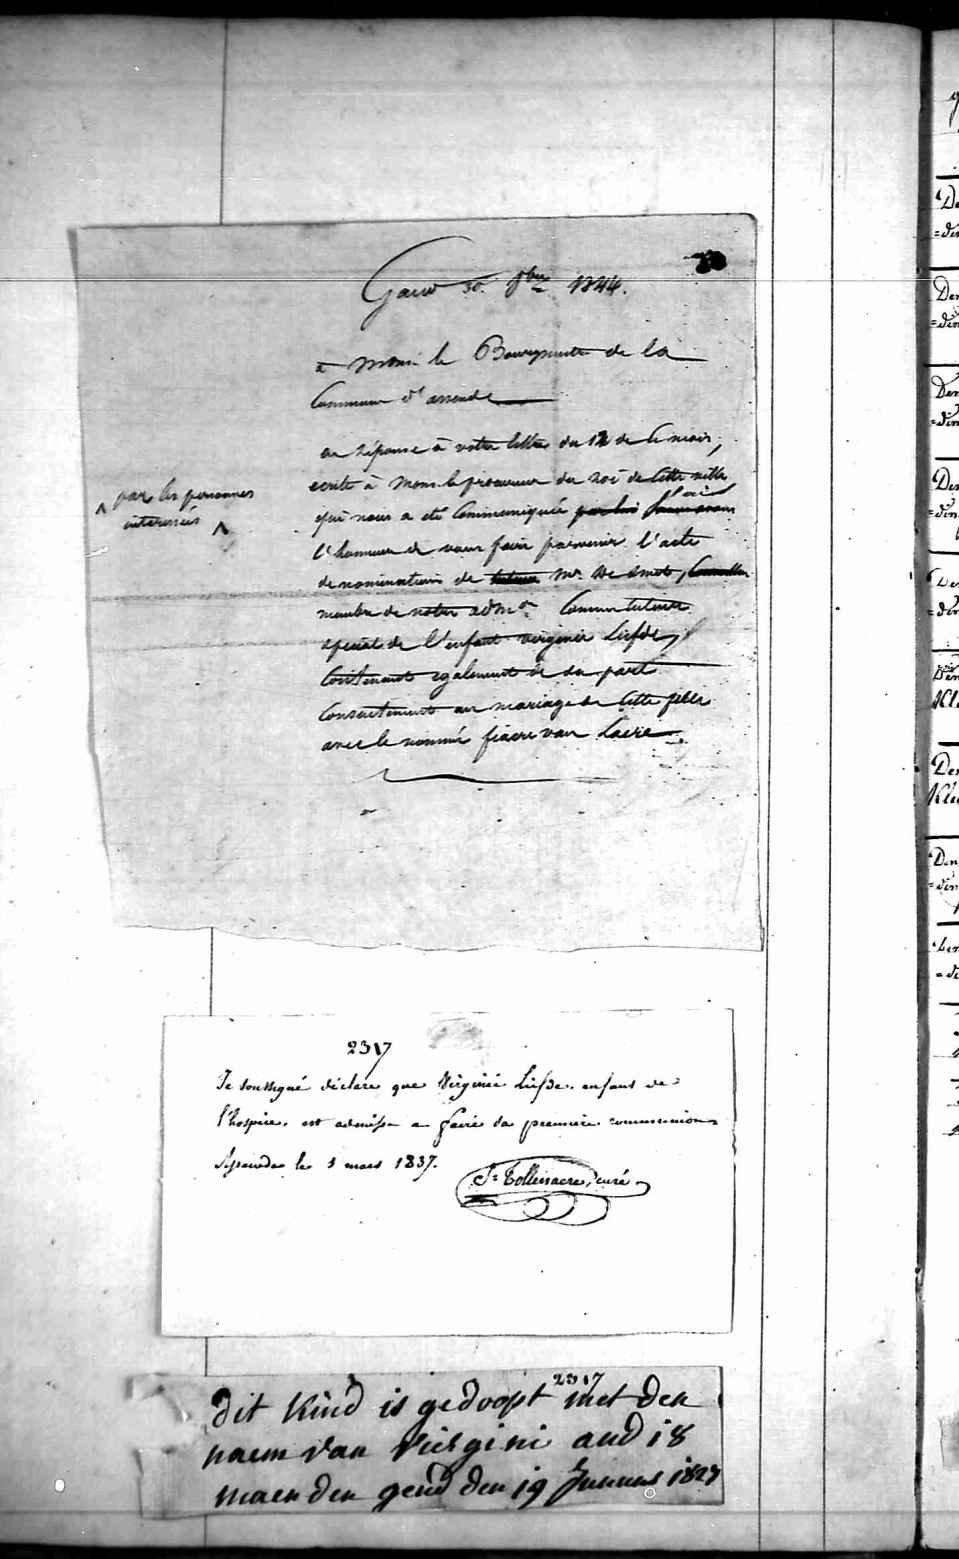 Gand 30 8bre 1844.
à Mons. le Bourgmestre de la
Commune d'assende
en réponse à votre lettre du 12 de ce mois,
ecrite à Mons. le procureur du Roi de cette ville
qui nous a été Communiquée par les personnes interessées j'ai
l'honneur de vous faire parvenir l'acte
de nomination de tuteur Mr. De Smet,
membre de notre adm.on Comme tuteur
spécial de l'enfant virginie Liefde,
Contenant egalement de sa part
Consentement au mariage de cette fille
avec le nommé fiacre van Laere
2317
Je soussigné déclare que Virginie Liefde. enfant de
l'hospice. est admise a faire sa premiere communion
Assende le 1 mars 1837.
J: Tollenaere, curé
2317
dit Kind is gedoopt met den
naem van Virgini aud 18
maenden gend den 19 Junuus 1827